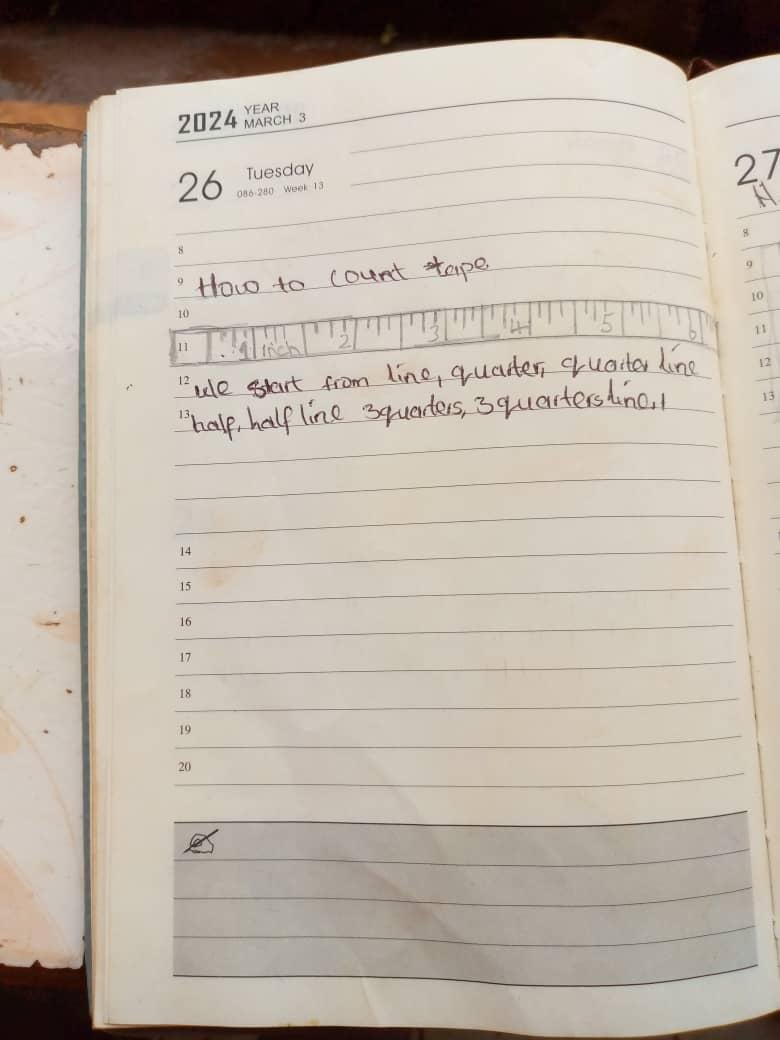 2024 YEAR
MARCH 3
26 Tuesday
086-280 Week 13
27
8
9 How to count tape
10
11 1 inch 2 3 4 5 6
12 We start from line, quarter, quarter line
13 half, half line 3quarters, 3quarters line, 1
14
15
16
17
18
19
20
8
9
10
11
12
13